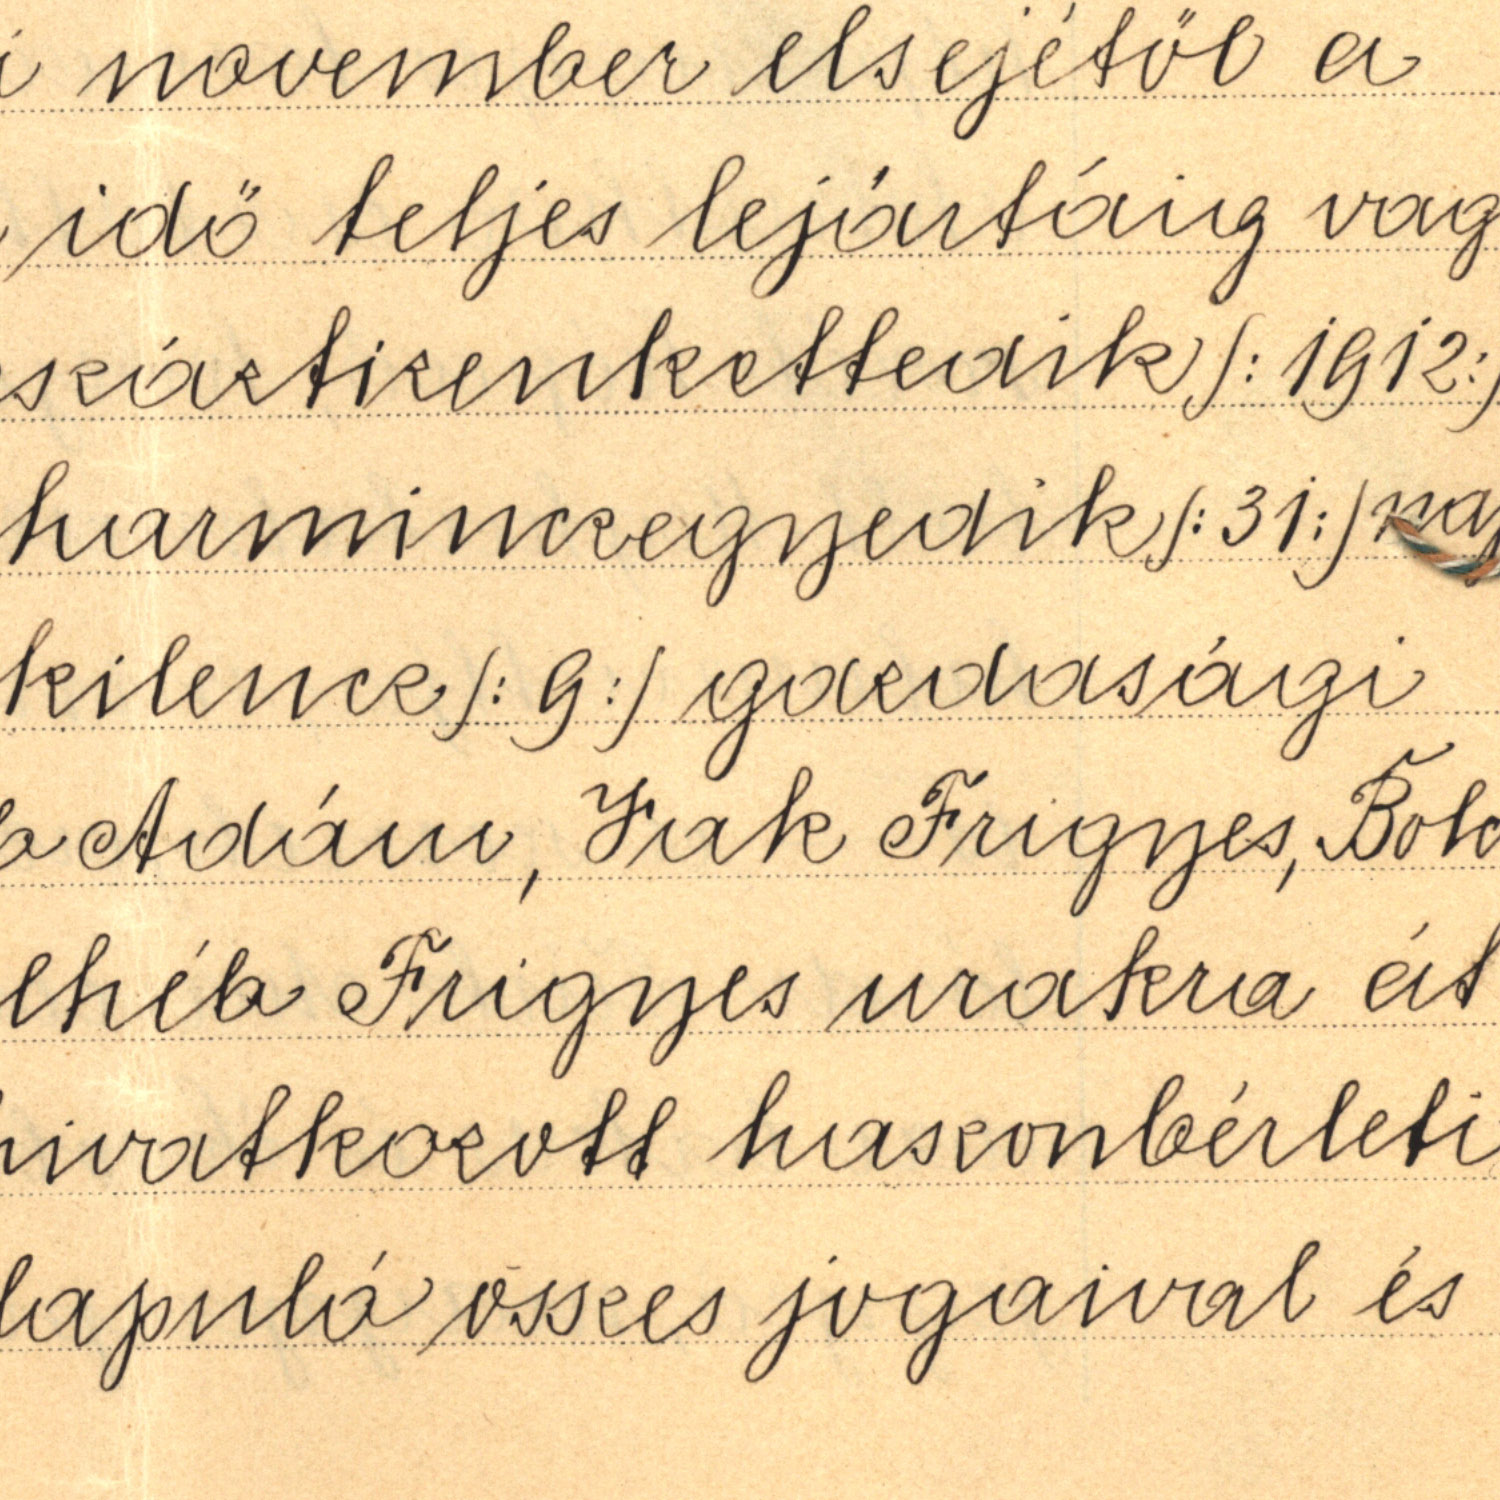 i november elsejétől a
idő teljes lejártáig vag
eszáztizenkettedik /: 1912:/
harminczegyedik /: 31:/ nap
kilencz /: 9 :/ gazdasági
b Ádám, Fak Frigyes, Bold
lhéb Frigyes urakra át
hivatkozott haszonbérleti
lapuló összes jogaival és